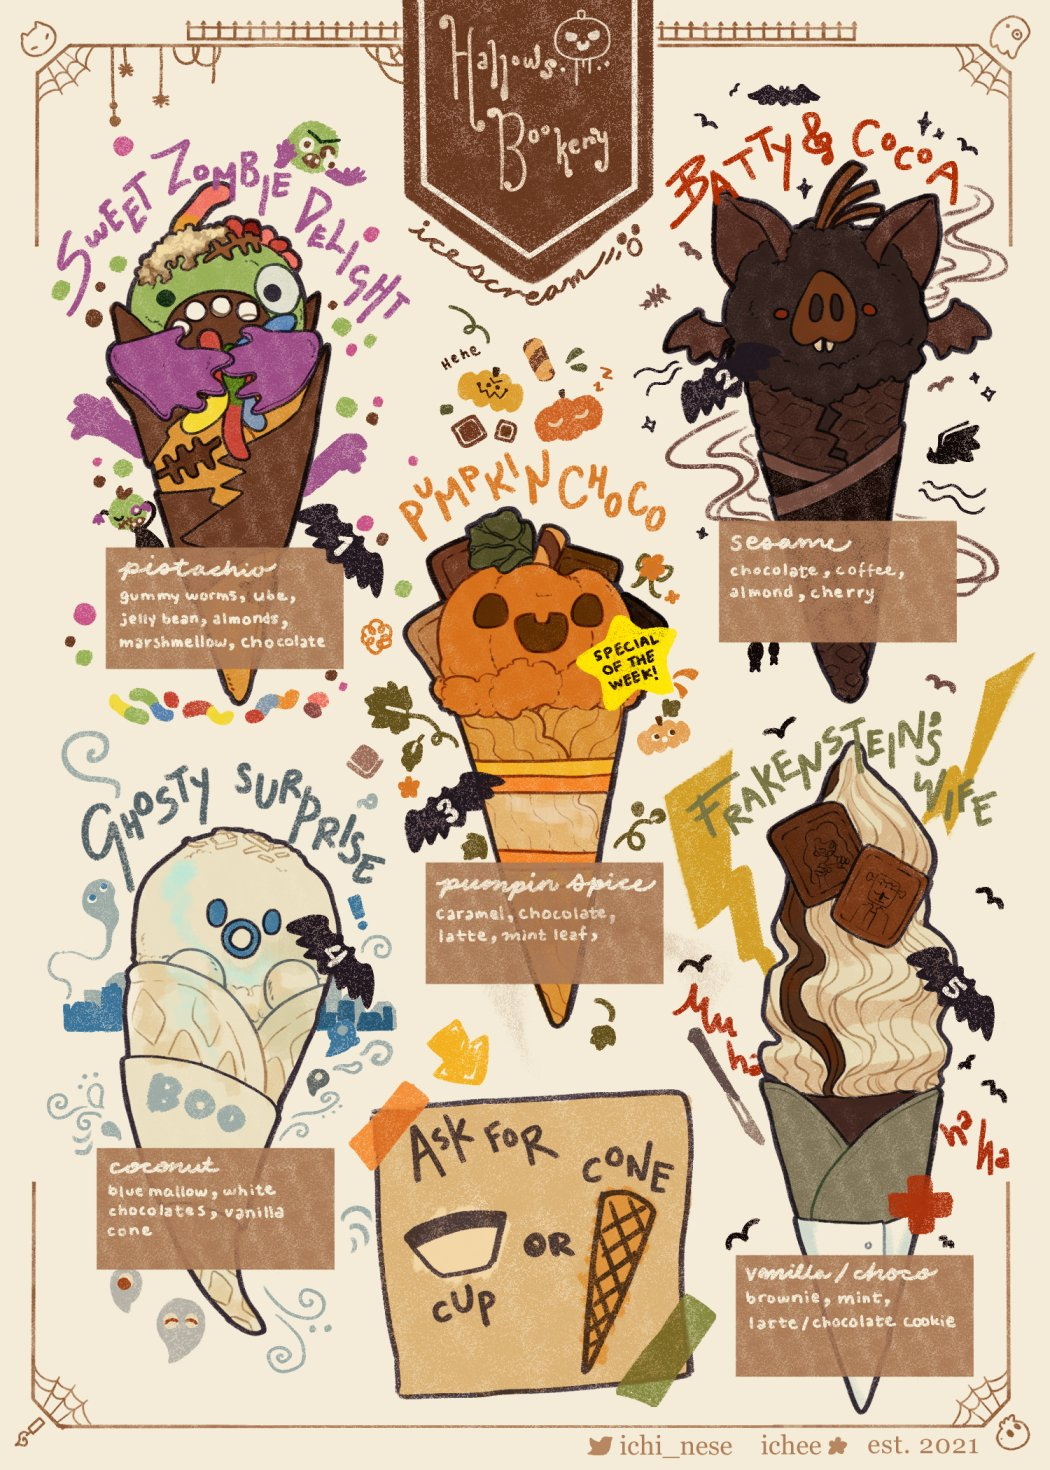 Hallows
Bookery
icescream
SWEET ZOMBIE DELIGHT
1
pistachio
gummy worms, ube,
jelly bean, almonds,
marshmellow, chocolate
BATTY & COCOA
2
sesame
chocolate, coffee,
almond, cherry
Hehe
zzz
PUMPKIN CHOCO
SPECIAL
OF THE
WEEK!
3
pumpin spice
caramel, chocolate,
latte, mint leaf,
GHOSTY SURPRISE!
4
BOO
coconut
blue mallow, white
chocolates, vanilla
cone
FRAKENSTEIN'S
WIFE
5
Mu
ha
ha
ha
vanilla / choco
brownie, mint,
latte/chocolate cookie
ASK FOR
CUP
OR
CONE
ichi_nese ichee est. 2021